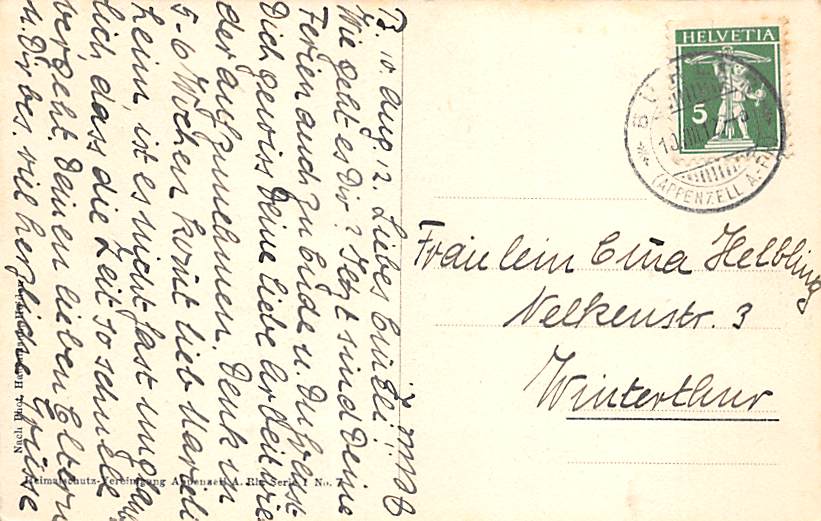 B. 10 Aug. 12. Liebes Emeli!
Wie geht es Dir? Jetzt sind Deine
Ferien auch zu Ende u. Du hast
Dich gewiss Deine liebe Arbeit wie
der aufzunehmen. Denk in
5-6 Wochen kommt lieb
heim, ist es nicht fast unglaub
lich dass die Zeit so schnell
vergeht. Deinen lieben Eltern
u. Dir bes. viel herzliche Grüsse
HELVETIA
5
(APPENZELL A.-RH.)
Fräulein Ema Helbling
Nelkenstr. 3
Winterthur
Nach Phot.
Heimatschutz-Vereinigung Appenzell A. Rh. Serie I No. 7